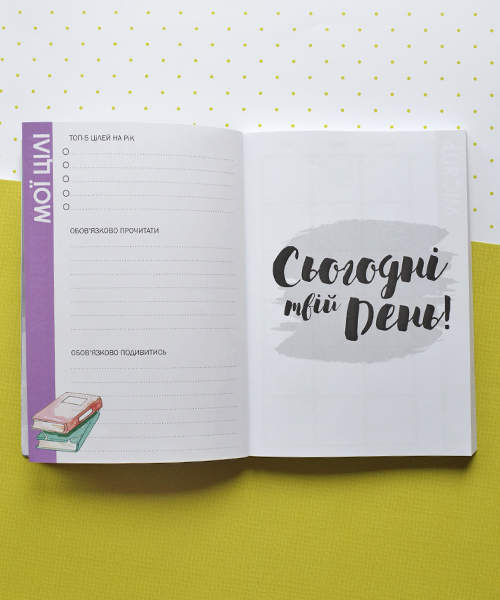 МОЇ ЦІЛІ
ТОП-5 ЦІЛЕЙ НА РІК
ОБОВ'ЯЗКОВО ПРОЧИТАТИ
ОБОВ'ЯЗКОВО ПОДИВИТИСЬ
Сьогодні
твій День!